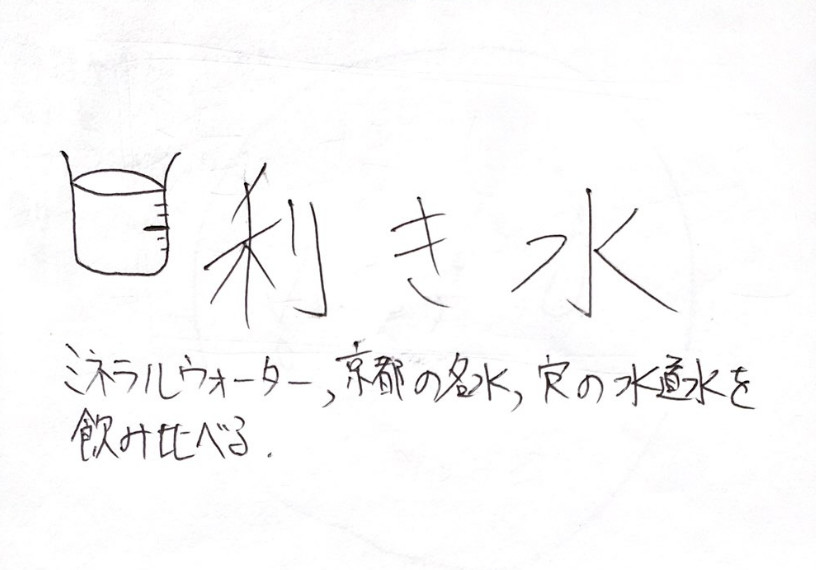 利き水
ミネラルウォーター,京都の名水,穴の水道水を
飲み比べる.